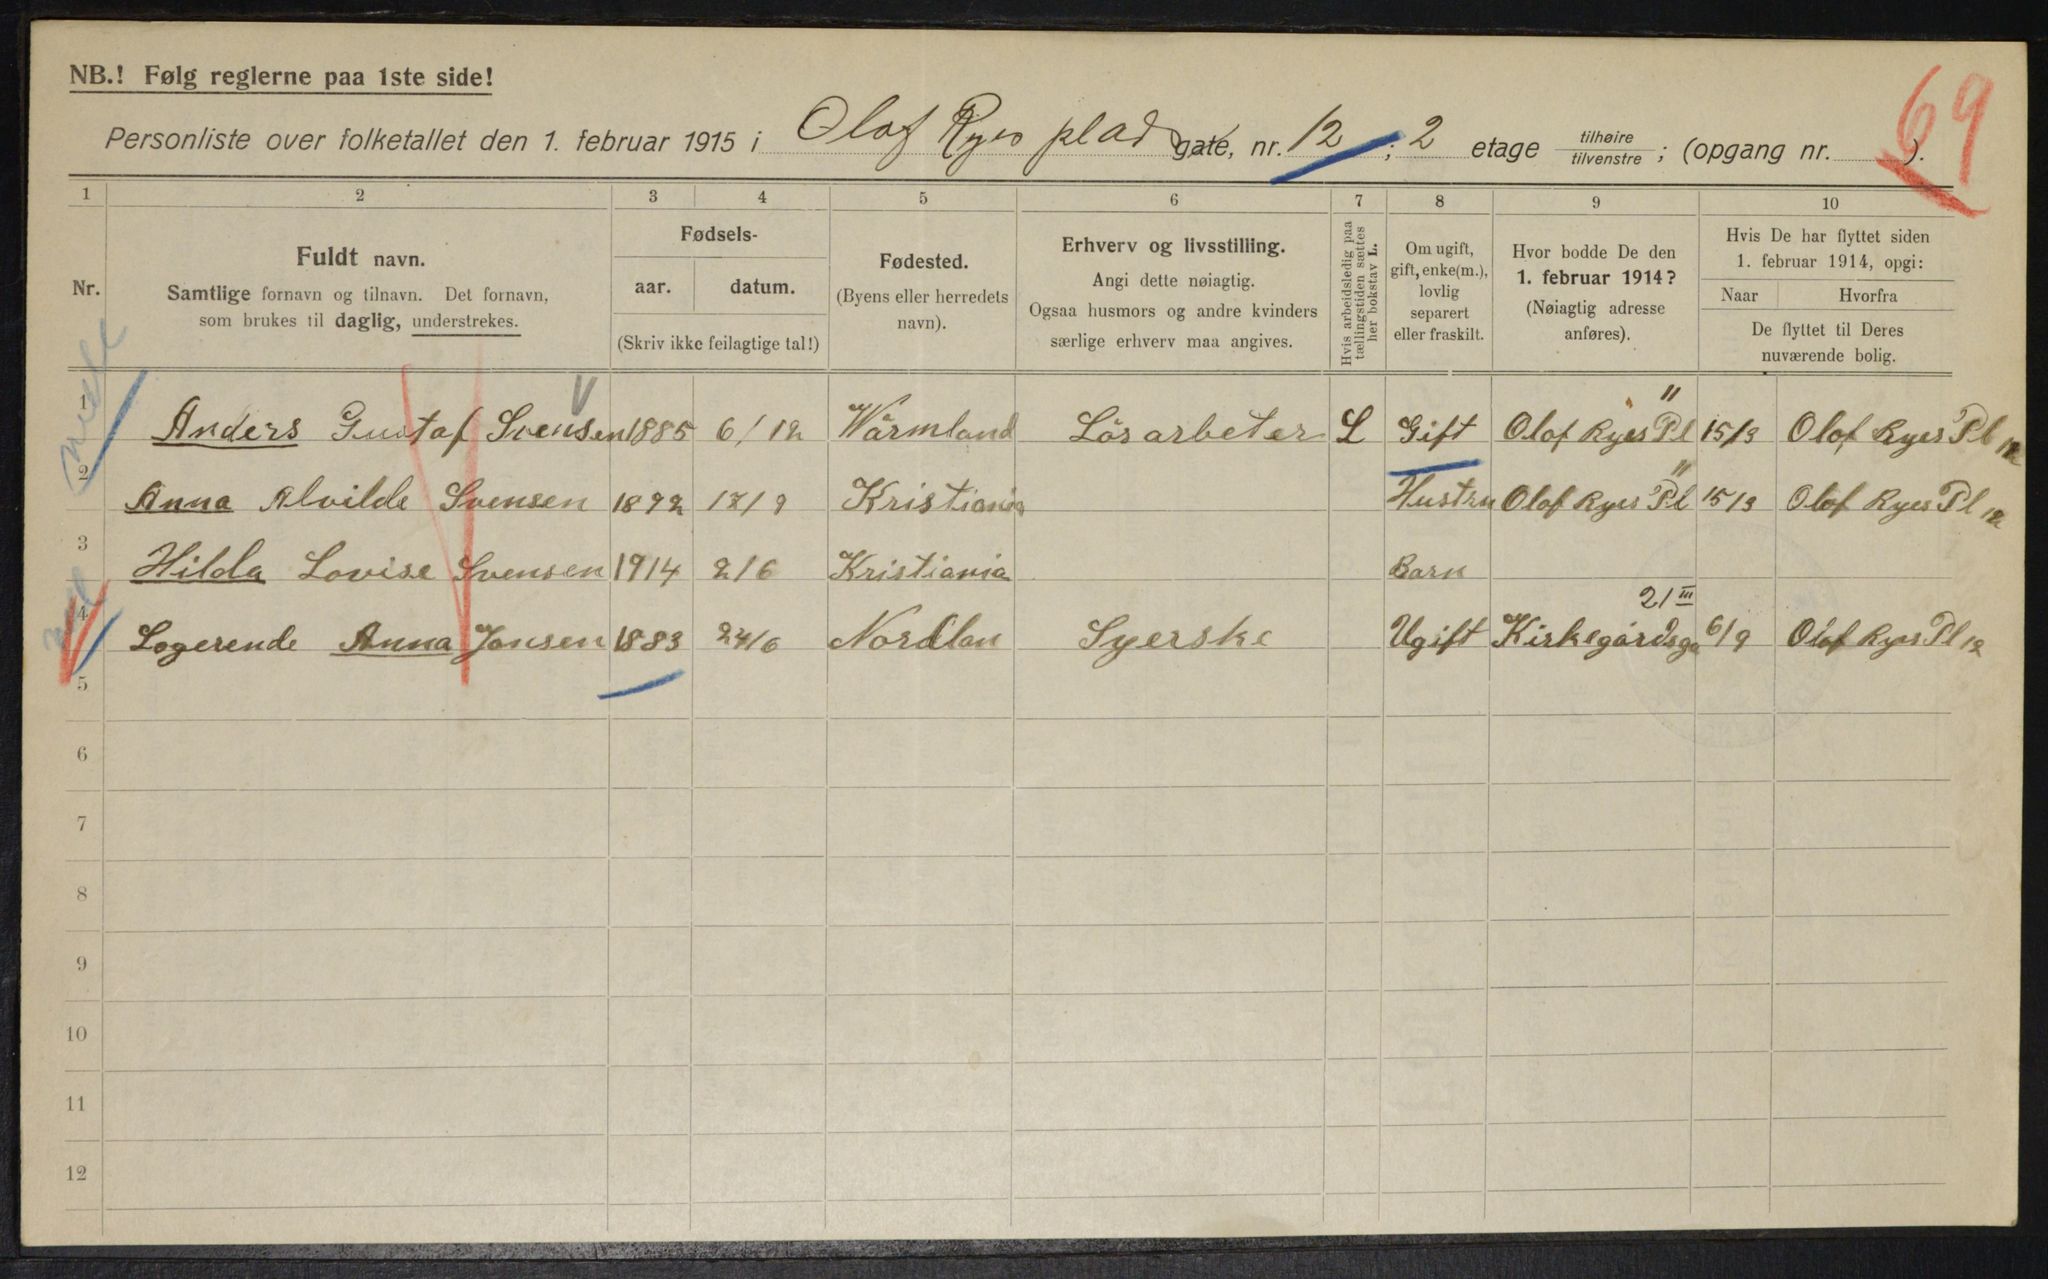 NB.! Følg reglerne paa 1ste side!
69
Personliste over folketallet den 1. februar 1915 i Olaf Ryes plads gate, nr. 12; 2 etage tilhøire tilvenstre; (opgang nr. ).
1 2 3 4 5 6 7 8 9 10
Nr.
Fuldt navn.
Samtlige fornavn og tilnavn. Det fornavn,
som brukes til daglig, understrekes.
Fødsels-
aar. datum.
(Skriv ikke feilagtige tal!)
Fødested.
(Byens eller herredets
navn).
Erhverv og livsstilling.
Angi dette nøiagtig.
Ogsaa husmors og andre kvinders
særlige erhverv maa angives.
Hvis arbeidsledig paa
tællingstiden sættes
her bokstav L.
Om ugift,
gift, enke(m.),
lovlig
separert
eller fraskilt.
Hvor bodde De den
1. februar 1914?
(Nøiagtig adresse
anføres).
Hvis De har flyttet siden
1. februar 1914, opgi:
Naar Hvorfra
De flyttet til Deres
nuværende bolig.
1 Anders Gustaf Svensen 1885 6/12 Wärmland Lösarbeter L Gift Olaf Ryes Pl " 15/3 Olaf Ryes Pl 12
2 Anna Alvilde Svensen 1892 Kristiania Hustru Olaf Ryes Pl " 15/3 Olaf Ryes Pl 12
3 Hilda Lovise Svensen 1914 2/6 Kristiania Barn
4 Logerende Anna Jonsen 1883 24/6 Nordlan Syerske Ugift Kirkegårdsga 21 III 6/9 Olaf Ryes Pl 12
5
6
7
8
9
10
11
12